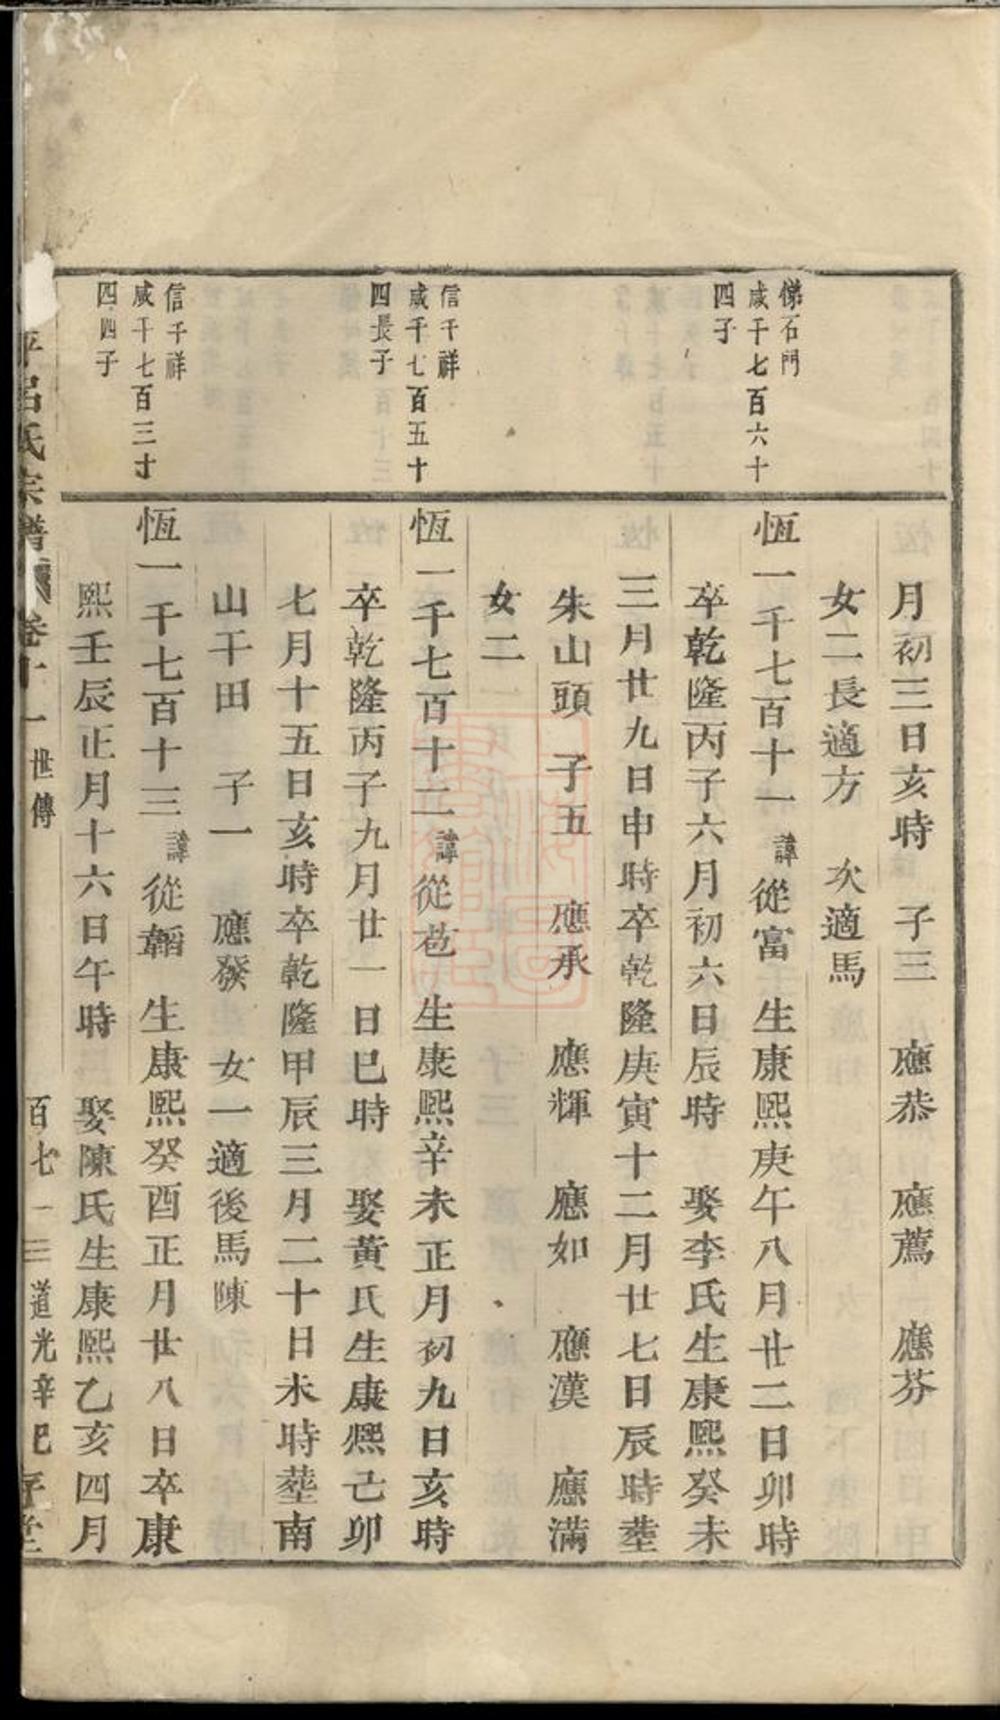 月初三日亥時　子三　應恭　應薦　應芬
女二長適方　次適馬
悌石門
咸千七百六十
四子
恆一千七百十一諱從富　生康熙庚午八月廿二日卯時
卒乾隆丙子六月初六日辰時　娶李氏生康熙癸未
三月廿九日申時卒乾隆庚寅十二月廿七日辰時塟
朱山頭　子五　應承　應輝　應如　應漢　應滿
女二
信千祥
咸千七百五十
四長子
恆一千七百十二諱從苞　生康熙辛未正月初九日亥時
卒乾隆丙子九月廿一日巳時　娶黃氏生康熙己卯
七月十五日亥時卒乾隆甲辰三月二十日未時塟南
山干田　子一　應發　女一適後馬陳
信千祥
咸千七百三寸
四四子
恆一千七百十三諱從韜　生康熙癸酉正月廿八日卒康
熙壬辰正月十六日午時　娶陳氏生康熙乙亥四月
平呂氏宗譜　卷十一　世傳　百七一三　道光辛巳　堂